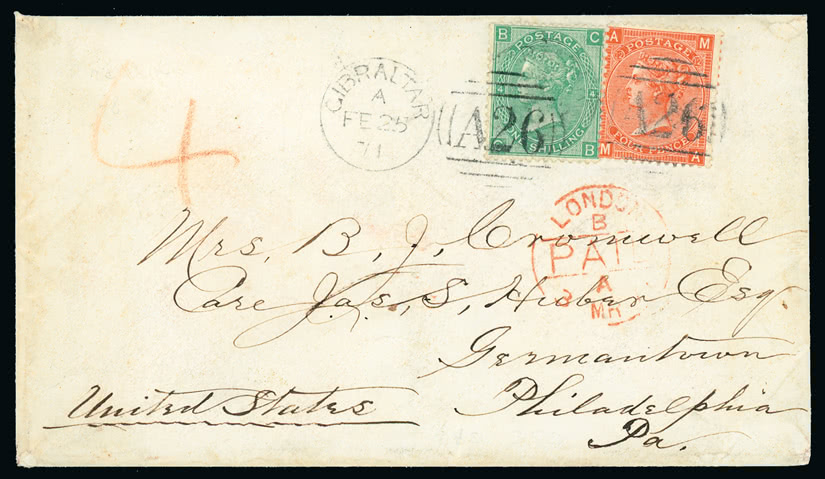 4
GIBRALTAR
A
FE 25
71
B C
POSTAGE
4 4
A26
ONE SHILLING
B
A M
POSTAGE
A26
FOUR PENCE
M A
LONDON
B
PAID
A
3
MR
Mrs. B. J. Cromwell
Care Jas. S, Huber Esq
Germantown
United States
Philadelphia
Pa.